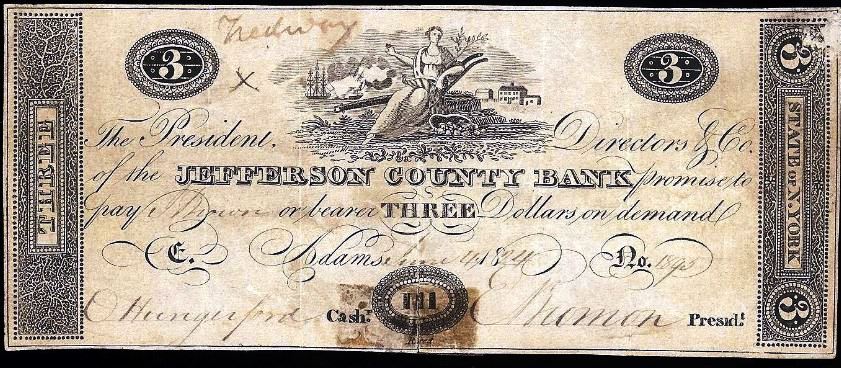 Tredway
3 3
X
THREE
3
STATE OF N.YORK
3
The President, Directors & Co.
of the JEFFERSON COUNTY BANK promise to
pay or bearer THREE Dollars on demand
E. Adams June 4, 1824 No. 1895
Hungerford Cash.r III Presid.t